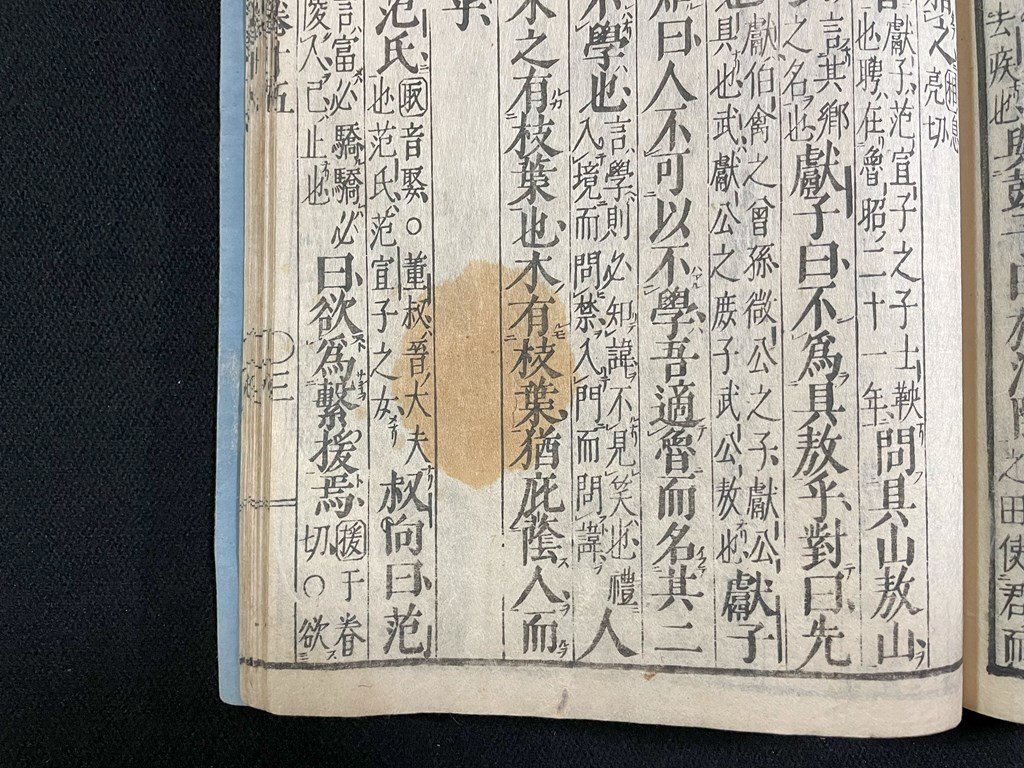 去疾也
之田使君而
相之
相息
亮切
獻子范宣子之子士鞅
也聘在魯昭二十一年
問具山敖山
言其鄉
之名也
獻子曰不為具敖乎對曰先
獻伯禽之曾孫微公之子獻公
具也武獻公之庶子武公敖也
獻子
曰人不可以不學吾適魯而名其二
不學也
言學則必知諱不見笑也禮
入境而問禁入門而問諱
人
木之有枝葉也木有枝葉猶庇蔭人而
乎
范氏
取音娶○董叔晉大夫
也范氏范宣子之女
叔向曰范
言富必驕驕必
陵入己止也
曰欲為繫援焉
援于眷
切○欲
卷十五
〇三